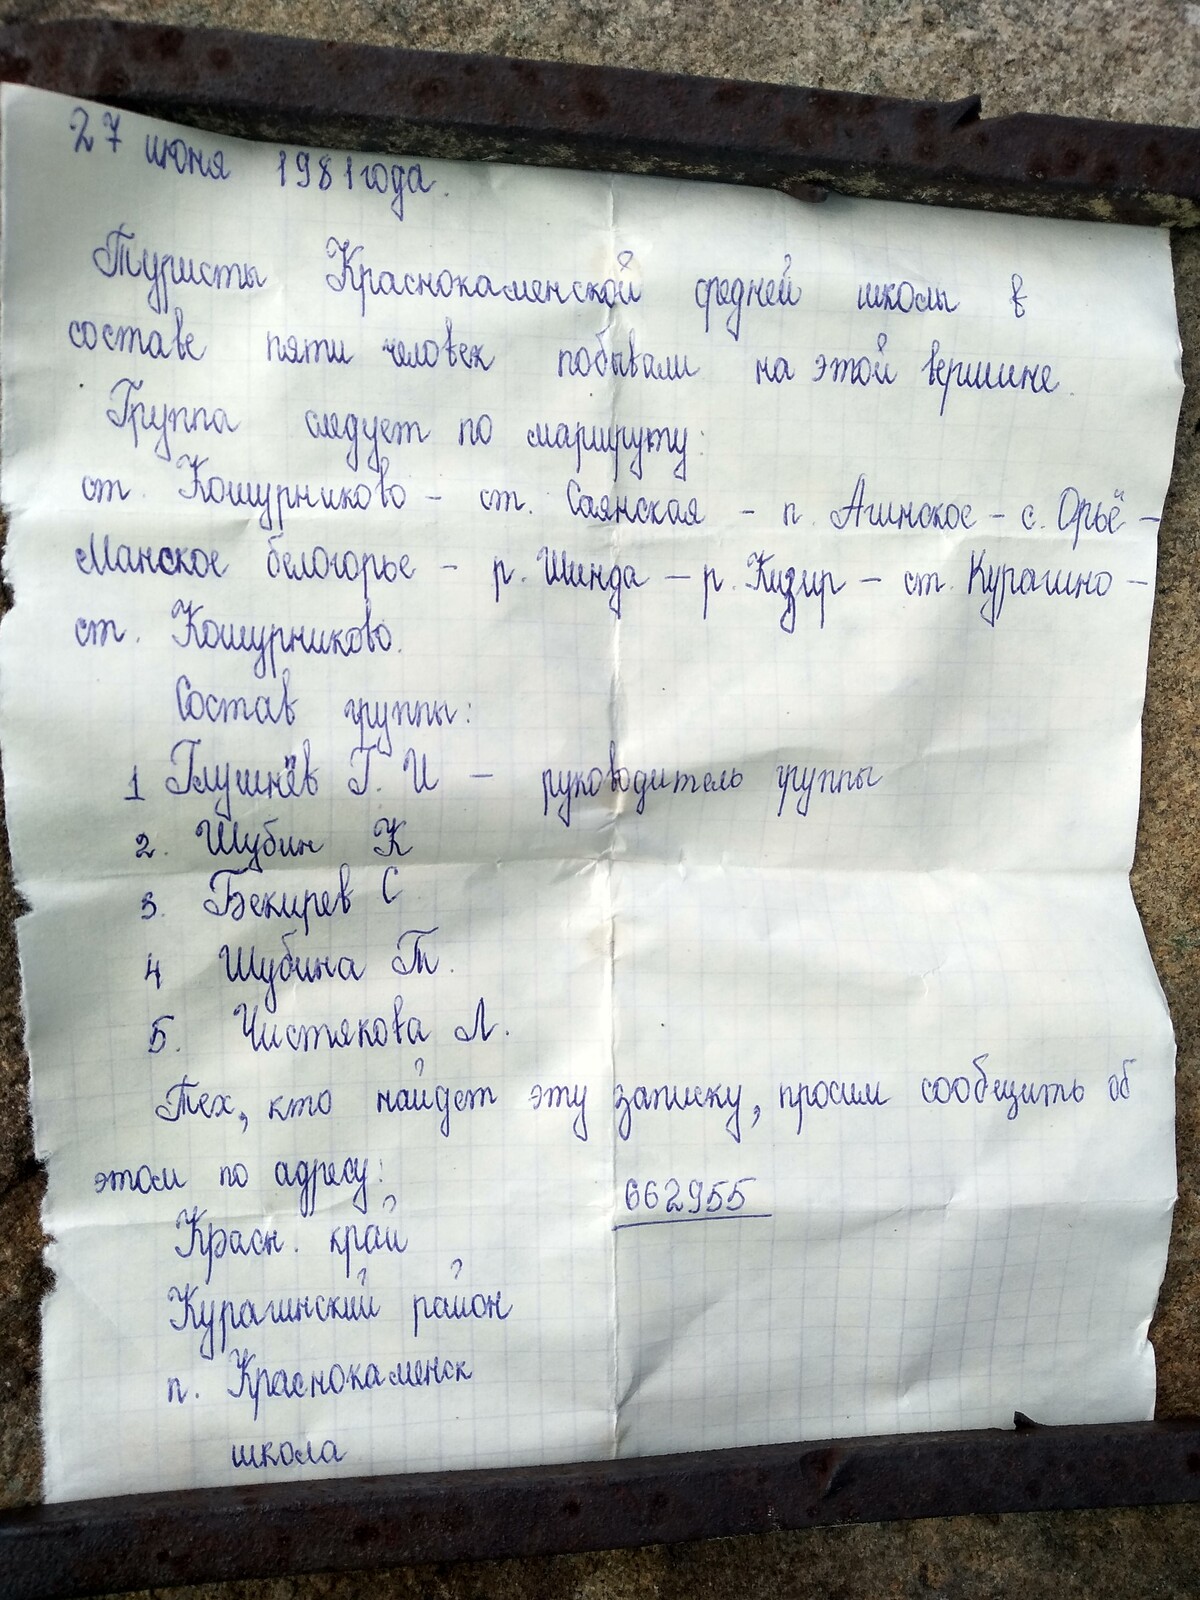 27 июня 1981 года.
Туристы Краснокаменской средней школы в
составе пяти человек побывали на этой вершине.
Группа следует по маршруту:
ст. Кошурниково – ст. Саянская – п. Агинское – с. Орьё –
Манское белогорье – р. Шинда – р. Кизир – ст. Курагино –
ст. Кошурниково.
Состав группы:
1 Глушнёв Г. И – руководитель группы
2. Шубин К
3. Бекирев С
4 Шубина Т.
5. Чистякова Л.
Тех, кто найдет эту записку, просим сообщить об
этом по адресу:
662955
Красн. край
Курагинский район
п. Краснокаменск
школа